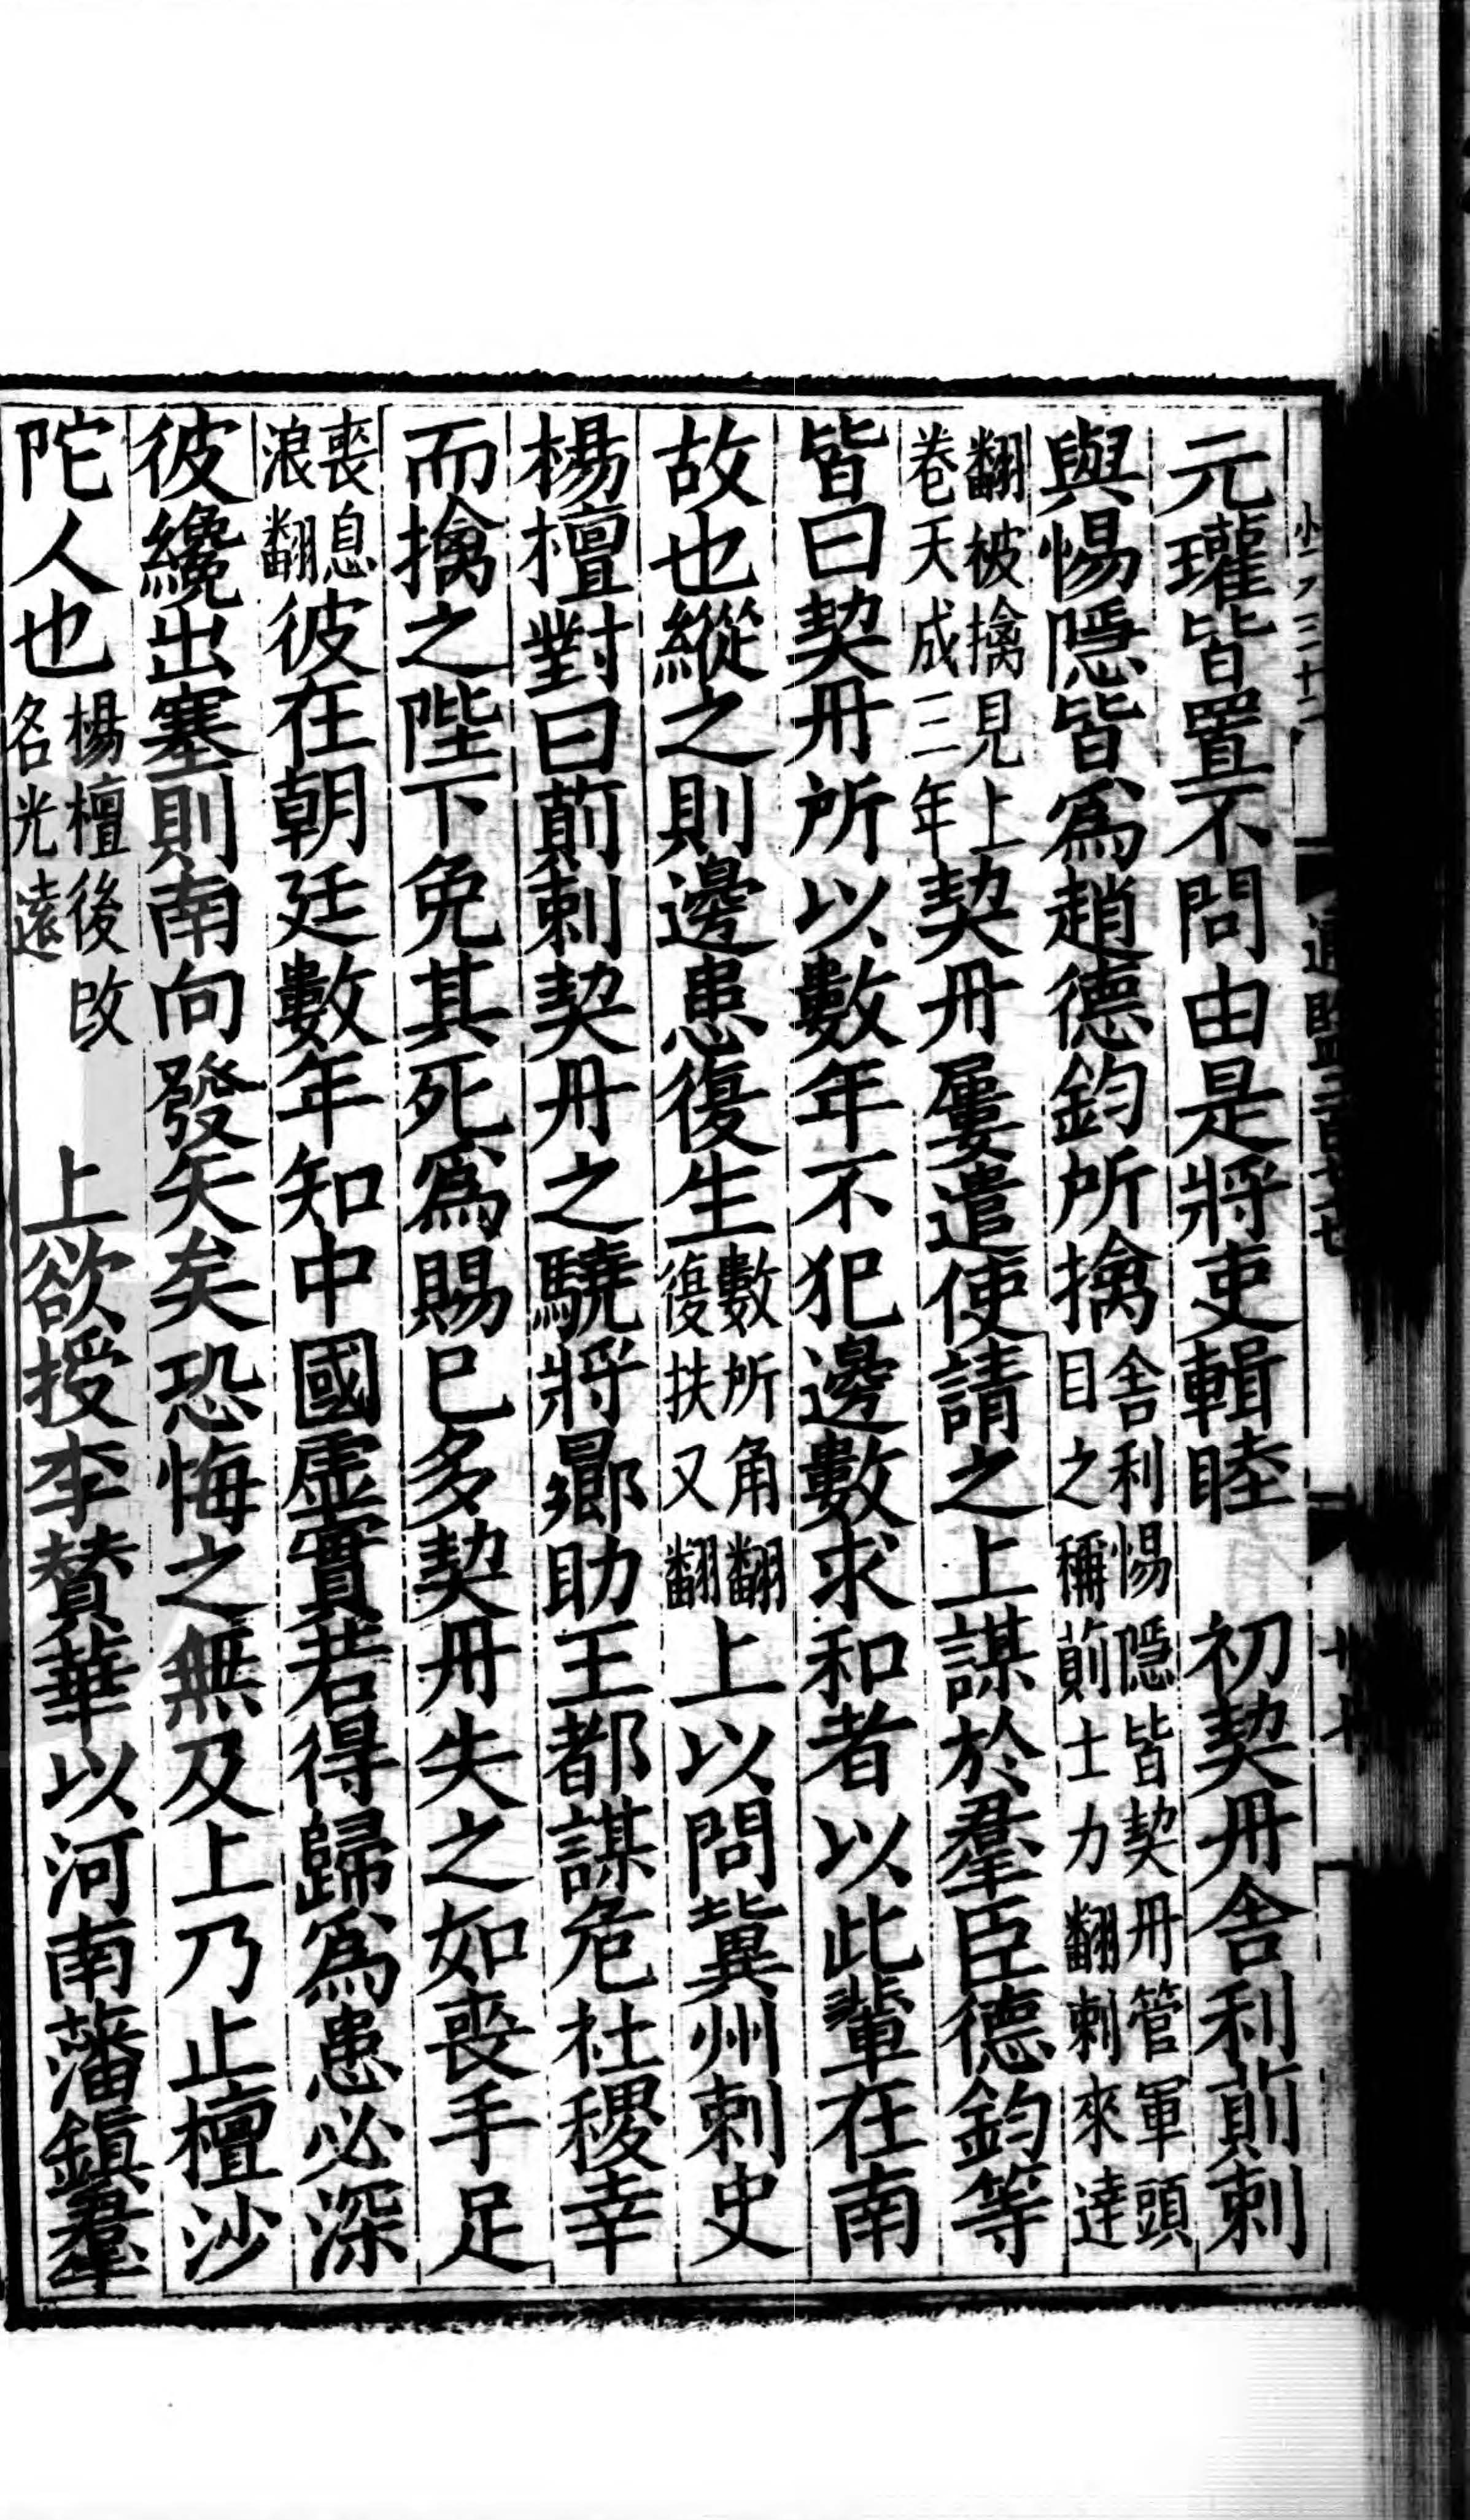 元瓘皆置不問由是將吏輯睦　初契丹舍利萴剌
與惕隱皆爲趙德鈞所擒舍利惕隱皆契丹管軍頭目之稱萴士力翻剌來達
翻被擒見上卷天成三年契丹屢遣使請之上謀於羣臣德鈞等
皆曰契丹所以數年不犯邊數求和者以此輩在南
故也縱之則邊患復生數所角翻復扶又翻上以問冀州刺史
楊檀對曰萴剌契丹之驍將曏助王都謀危社稷幸
而擒之陛下免其死爲賜已多契丹失之如喪手足
喪息浪翻彼在朝廷數年知中國虛實若得歸爲患必深
彼纔出塞則南向發矢矣恐悔之無及上乃止檀沙
陀人也楊檀後改名光遠　上欲授李贊華以河南藩鎮羣